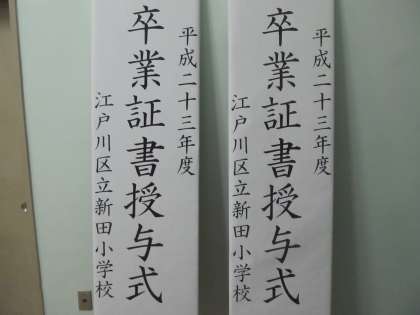 平成二十三年度
卒業証書授与式
江戸川区立新田小学校
平成二十三年度
卒業証書授与式
江戸川区立新田小学校